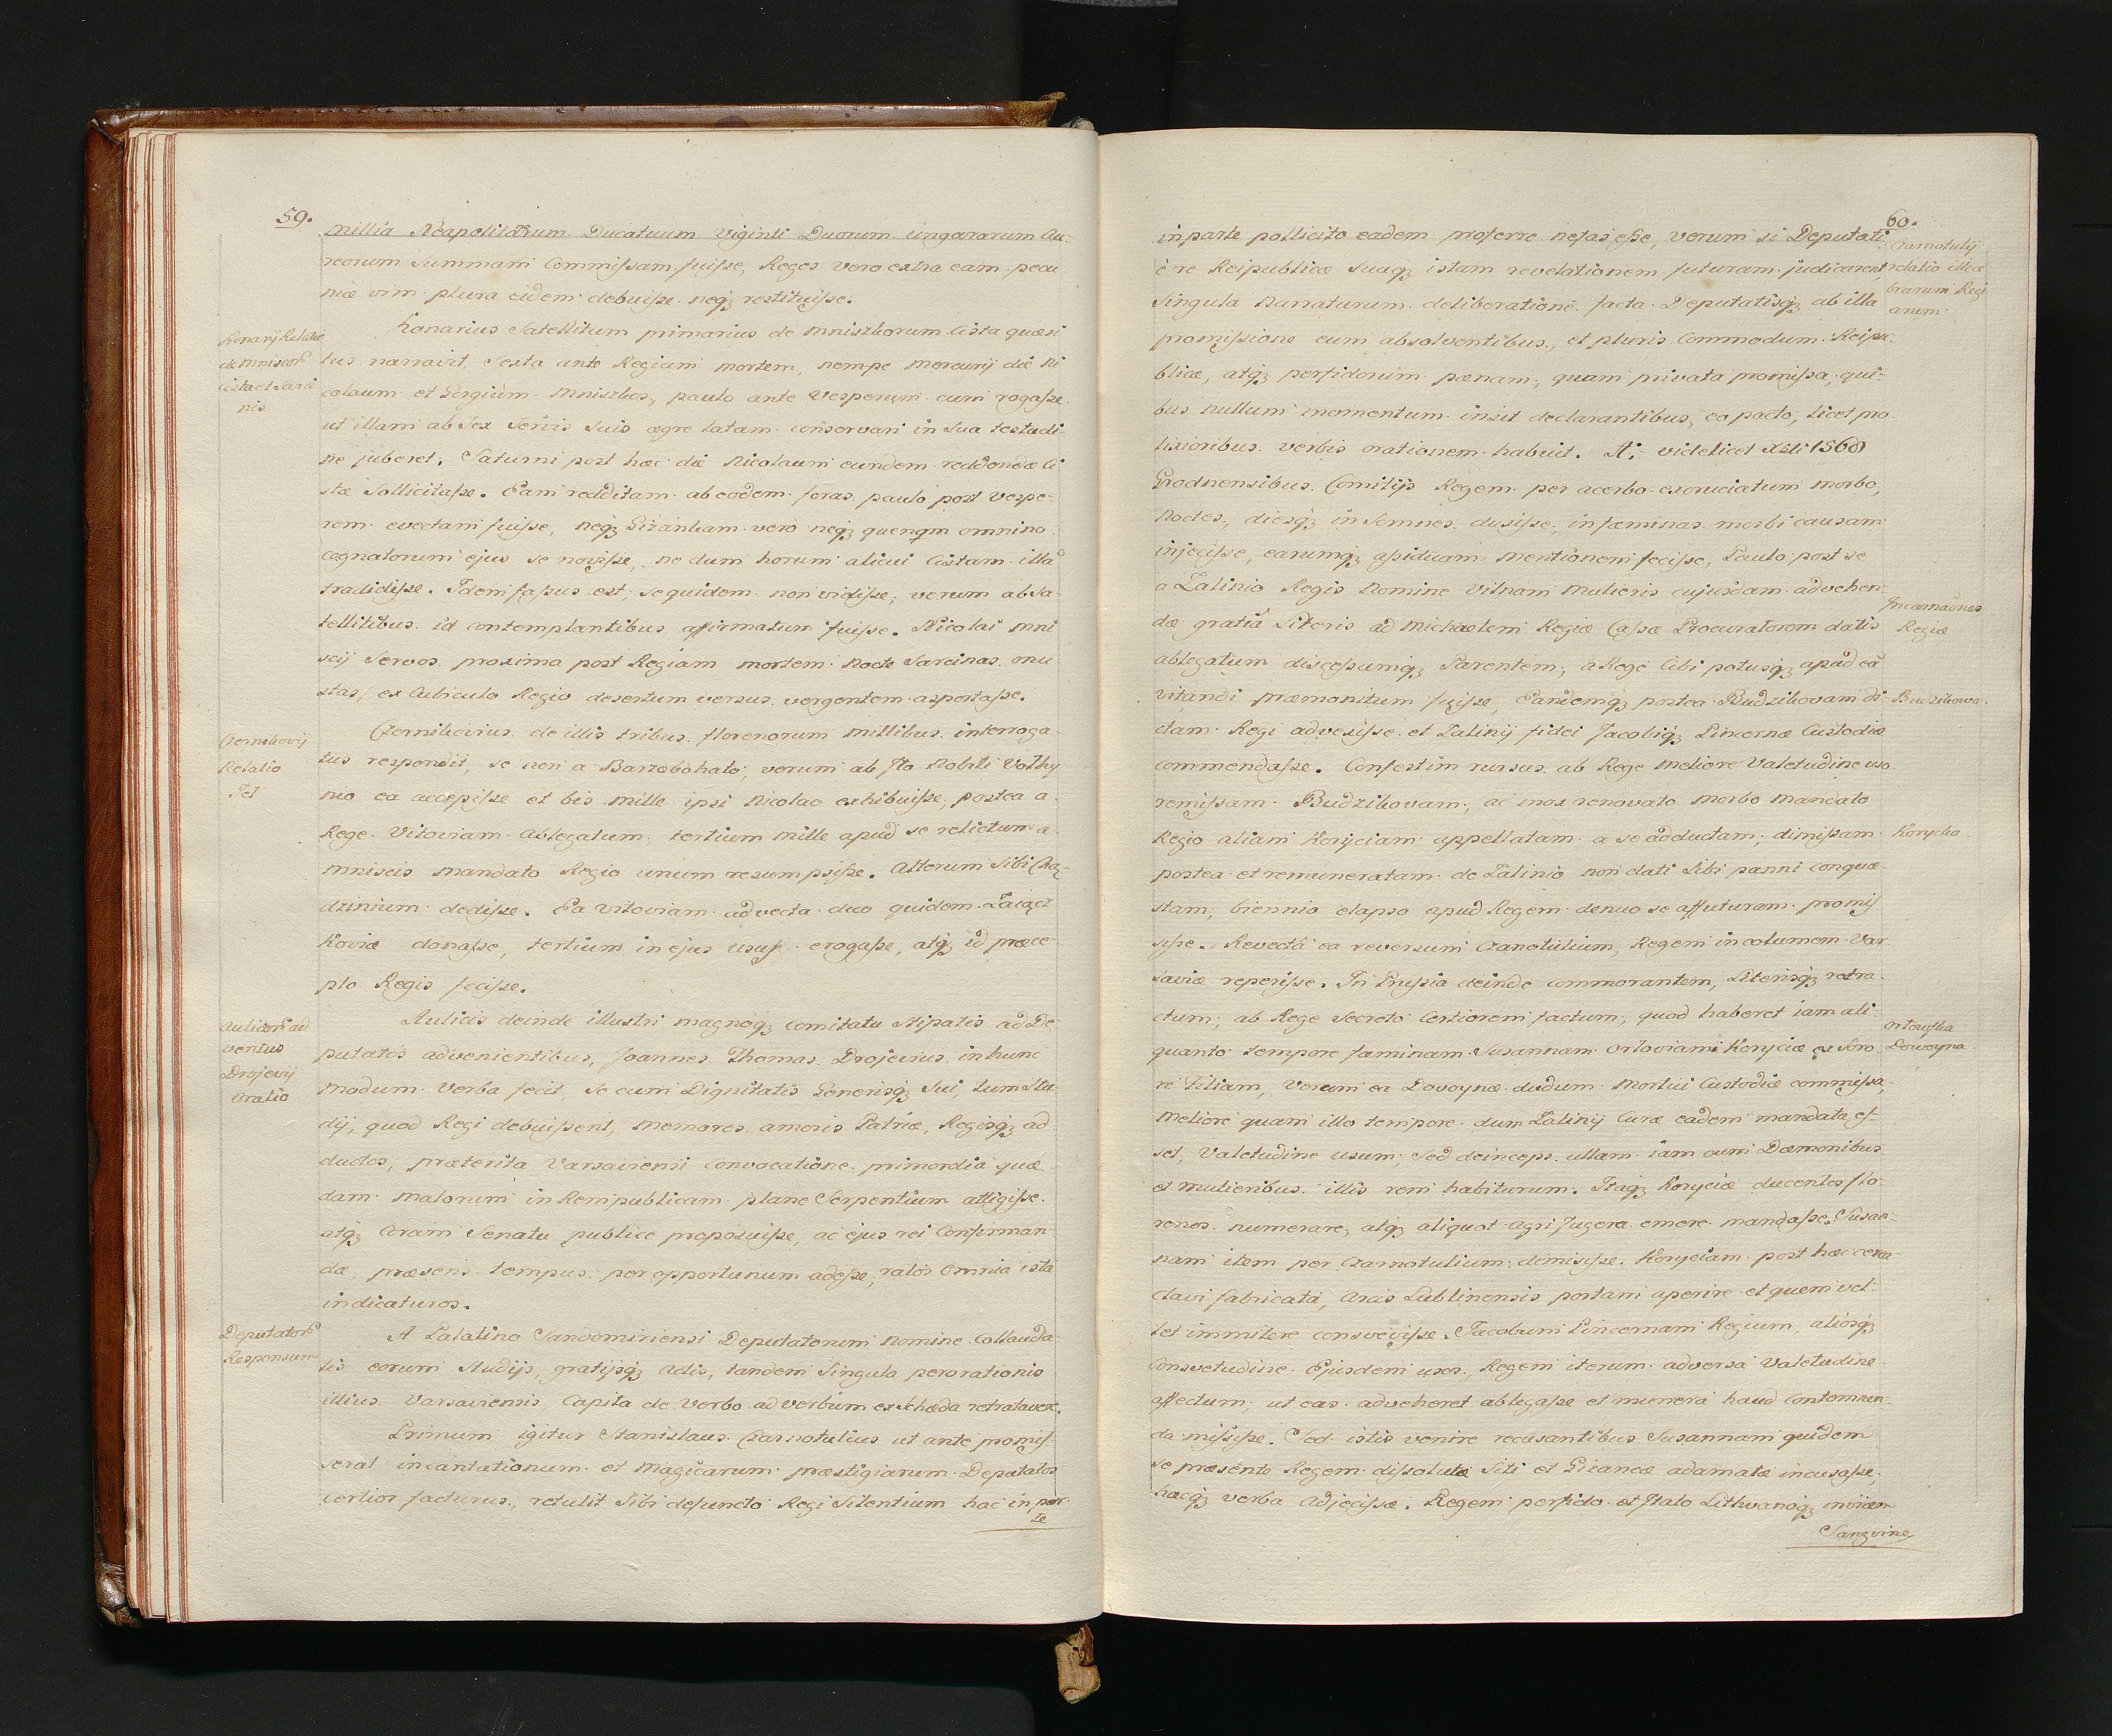 59.
millia Neapolitarum Ducatuum viginti Duorum ungararum Au-
reorum Summam Commissam fuisse, Reges vero extra eam pecu
niæ vim plura eidem debuisse neqȝ restituisse.
Konarij Relatio
de Mniscor
Cista et Sarci
nis
Konarius Satellitum primarius de Mniszkorum Cista quæsi
tus narravit, Sexta ante Regiam mortem, nempe Mercurij die Ni
colaum et Gorgium Mniszkos, paulo ante Vesperum eum rogasse
ut illam ab Sex Servis suis ægre latam conservari in Sua testudi-
ne juberet. Saturni post hæc die Nicolaum eundem reddendæ Ci
stæ Sollicitasse. Eam redditam ab eodem foras paulo post vespe-
rem evectam fuisse, neqȝ Gizankam vero neqȝ quenqm omnino
cognatorum ejus se novisse, ne dum horum alicui Cistam illa
tradidisse. Idem fassus est, se quidem non vidisse, verum ab Sa-
tellitibus id contemplantibus affirmatum fuisse. Nicolai Mni
scij Servos proxima post Regiam mortem nocte Sarcinas onu-
stas, ex Cubiculo Regio desertum versus vergentem asportasse.
Czernikovij
Relatio
Czernikovius de illis tribus florenorum millibus interroga-
tus respondit, se non a Barzobohato, verum ab Ito Nobili Volhy
nio ea accepisse et bis mille ipsi Nicolao exhibuisse, postea a
Rege Vitoviam ablegatum, tertium mille apud se relictum a
Mniscis mandato Regio unum resumpsisse. Alterum Sibi
dedisse. Ea Vitoviam advecta duo quidem Zaiącz
koviæ donasse, tertium in ejus usus erogasse, atqȝ id præce-
pto Regis fecisse.
Aulicor ad
ventus
Drojevij
oratio
Aulicis deinde illustri magnoqȝ comitatu stipatis ad De
putatos advenientibus, Joannes Thomas Drojevius in hunc
modum verba fecit, se cum Dignitatis Generisqȝ Sui, tum Stu-
dij, quod Regi debuissent, memores amoris Patriæ, Regisqȝ ad
ductos, præterita Varsaviensi Convocatione primordia quæ
dam malorum in Rempublicam plane Serpentium attigisse
atqȝ coram Senatu publice proposuisse, ac ejus rei Confirman-
dæ, præsens tempus peropportunum adesse, ratos omnia ista
indicaturos.
Deputator
Responsum
A Palatino Sandomiriensi Deputatorum nomine collauda-
tis eorum Studijs, gratijsqȝ actis, tandem Singula perorationis
illius Varsaviensis Capita de verbo ad verbum ex Scheda retratavere.
Primum igitur Stanislaus Czarnotulius ut ante promis-
serat incantationum et magicarum præstigiarum Deputatos
certior facturus, retulit Sibi defuncto Regi Silentium hac in par-
te
60.
in parte pollicito eadem proferre nefas esse, verum si Deputati
è re Reipublicæ Suaqȝ istam revelationem futuram judicarent,
Singula Narraturum deliberatione facta Deputatisqȝ ab illa
promissione eum absolventibus, et pluris Commodum Reipu-
blicæ, atqȝ perfidorum pænam, quam privata promissa, qui-
bus nullum momentum insit declarantibus, eo pacto, licet pro
lixioribus verbis orationem habuit. Ai videlicet Xsti 1568
Grodnensibus Comitijs Regem per acerbo excruciatum morbo,
Noctes, diesqȝ in Somnes duxisse, in fæminas morbi causam
injecisse, earumqȝ assiduam mentionem fecisse, Paulo post se
a Zalinio Regis Nomine Vilnam mulieris cujusdam advehen-
dæ gratia Literis ad Michaelem Regiæ Cassæ Procuratorem datis
ablegatum discessumqȝ Parentem, a Rege Cibi potusqȝ apud ea
vitandi præmonitum fuisse, Eandemqȝ postea Budzikovam di-
ctam Regi advexisse et Zalinij fidei Jacobiqȝ Pincernæ Custodiæ
commendasse. Confestim rursus ab Rege meliore Valetudine uso
remissam Budzikovam, ac mox renovato morbo mandato
Regio aliam Korijciam appellatam a se adductam, dimissam
postea et remuneratam de Zalinio non dati Sibi panni conquæ-
stam, biennio elapso apud Regem denuo se affuturam promis
sisse. Revecta ea reversum Czanotulium, Regem incolumem Var
saviæ reperisse. In Prussia deinde commorantem, Literisqȝ retra-
ctum, ab Rege Secreto Certiorem factum, quod haberet iam ali-
quanto tempore fæminam Susannam Orloviam Koryciæ ex Soro
re Filiam, Verum ea Dovoynæ dudum mortui Custodiæ commissa,
meliore quam illo tempore dum Zalinij Curæ eadem mandata es-
set, Valetudine usum, Sed deinceps ullam iam cum Dæmonibus
et mulieribus illis rem habiturum. Itaqȝ Koryciæ ducentos flo-
renos numerare, atqȝ aliquot agri Jugera emere mandasse. Susan-
nam item per Czarnotulium dimisisse. Koryciam post hæc cerea
clavi fabricata, Arcis Lublinensis portam aperire et quem vel-
let immitere consvevisse. Jacobum Pincernam Regium, aliosqȝ
Consvetudine Ejusdem usos, Regem iterum adversa Valetudine
affectum, ut eas adveheret ablegasse et munera haud contemnen-
da misisse. Sed istis venire recusantibus Susannam quidem
se præsente Regem dissolutæ Siti et Gizancæ adamatæ incusasse,
hæcqȝ verba Adjecisse. Regem perfido et Italo Lithvanoqȝ
Sangvine
Czarnotulij
relatio illece
brarum Regi
arum
Regiæ
Budzikowa
Korycka
Orlowska
Dowoyna